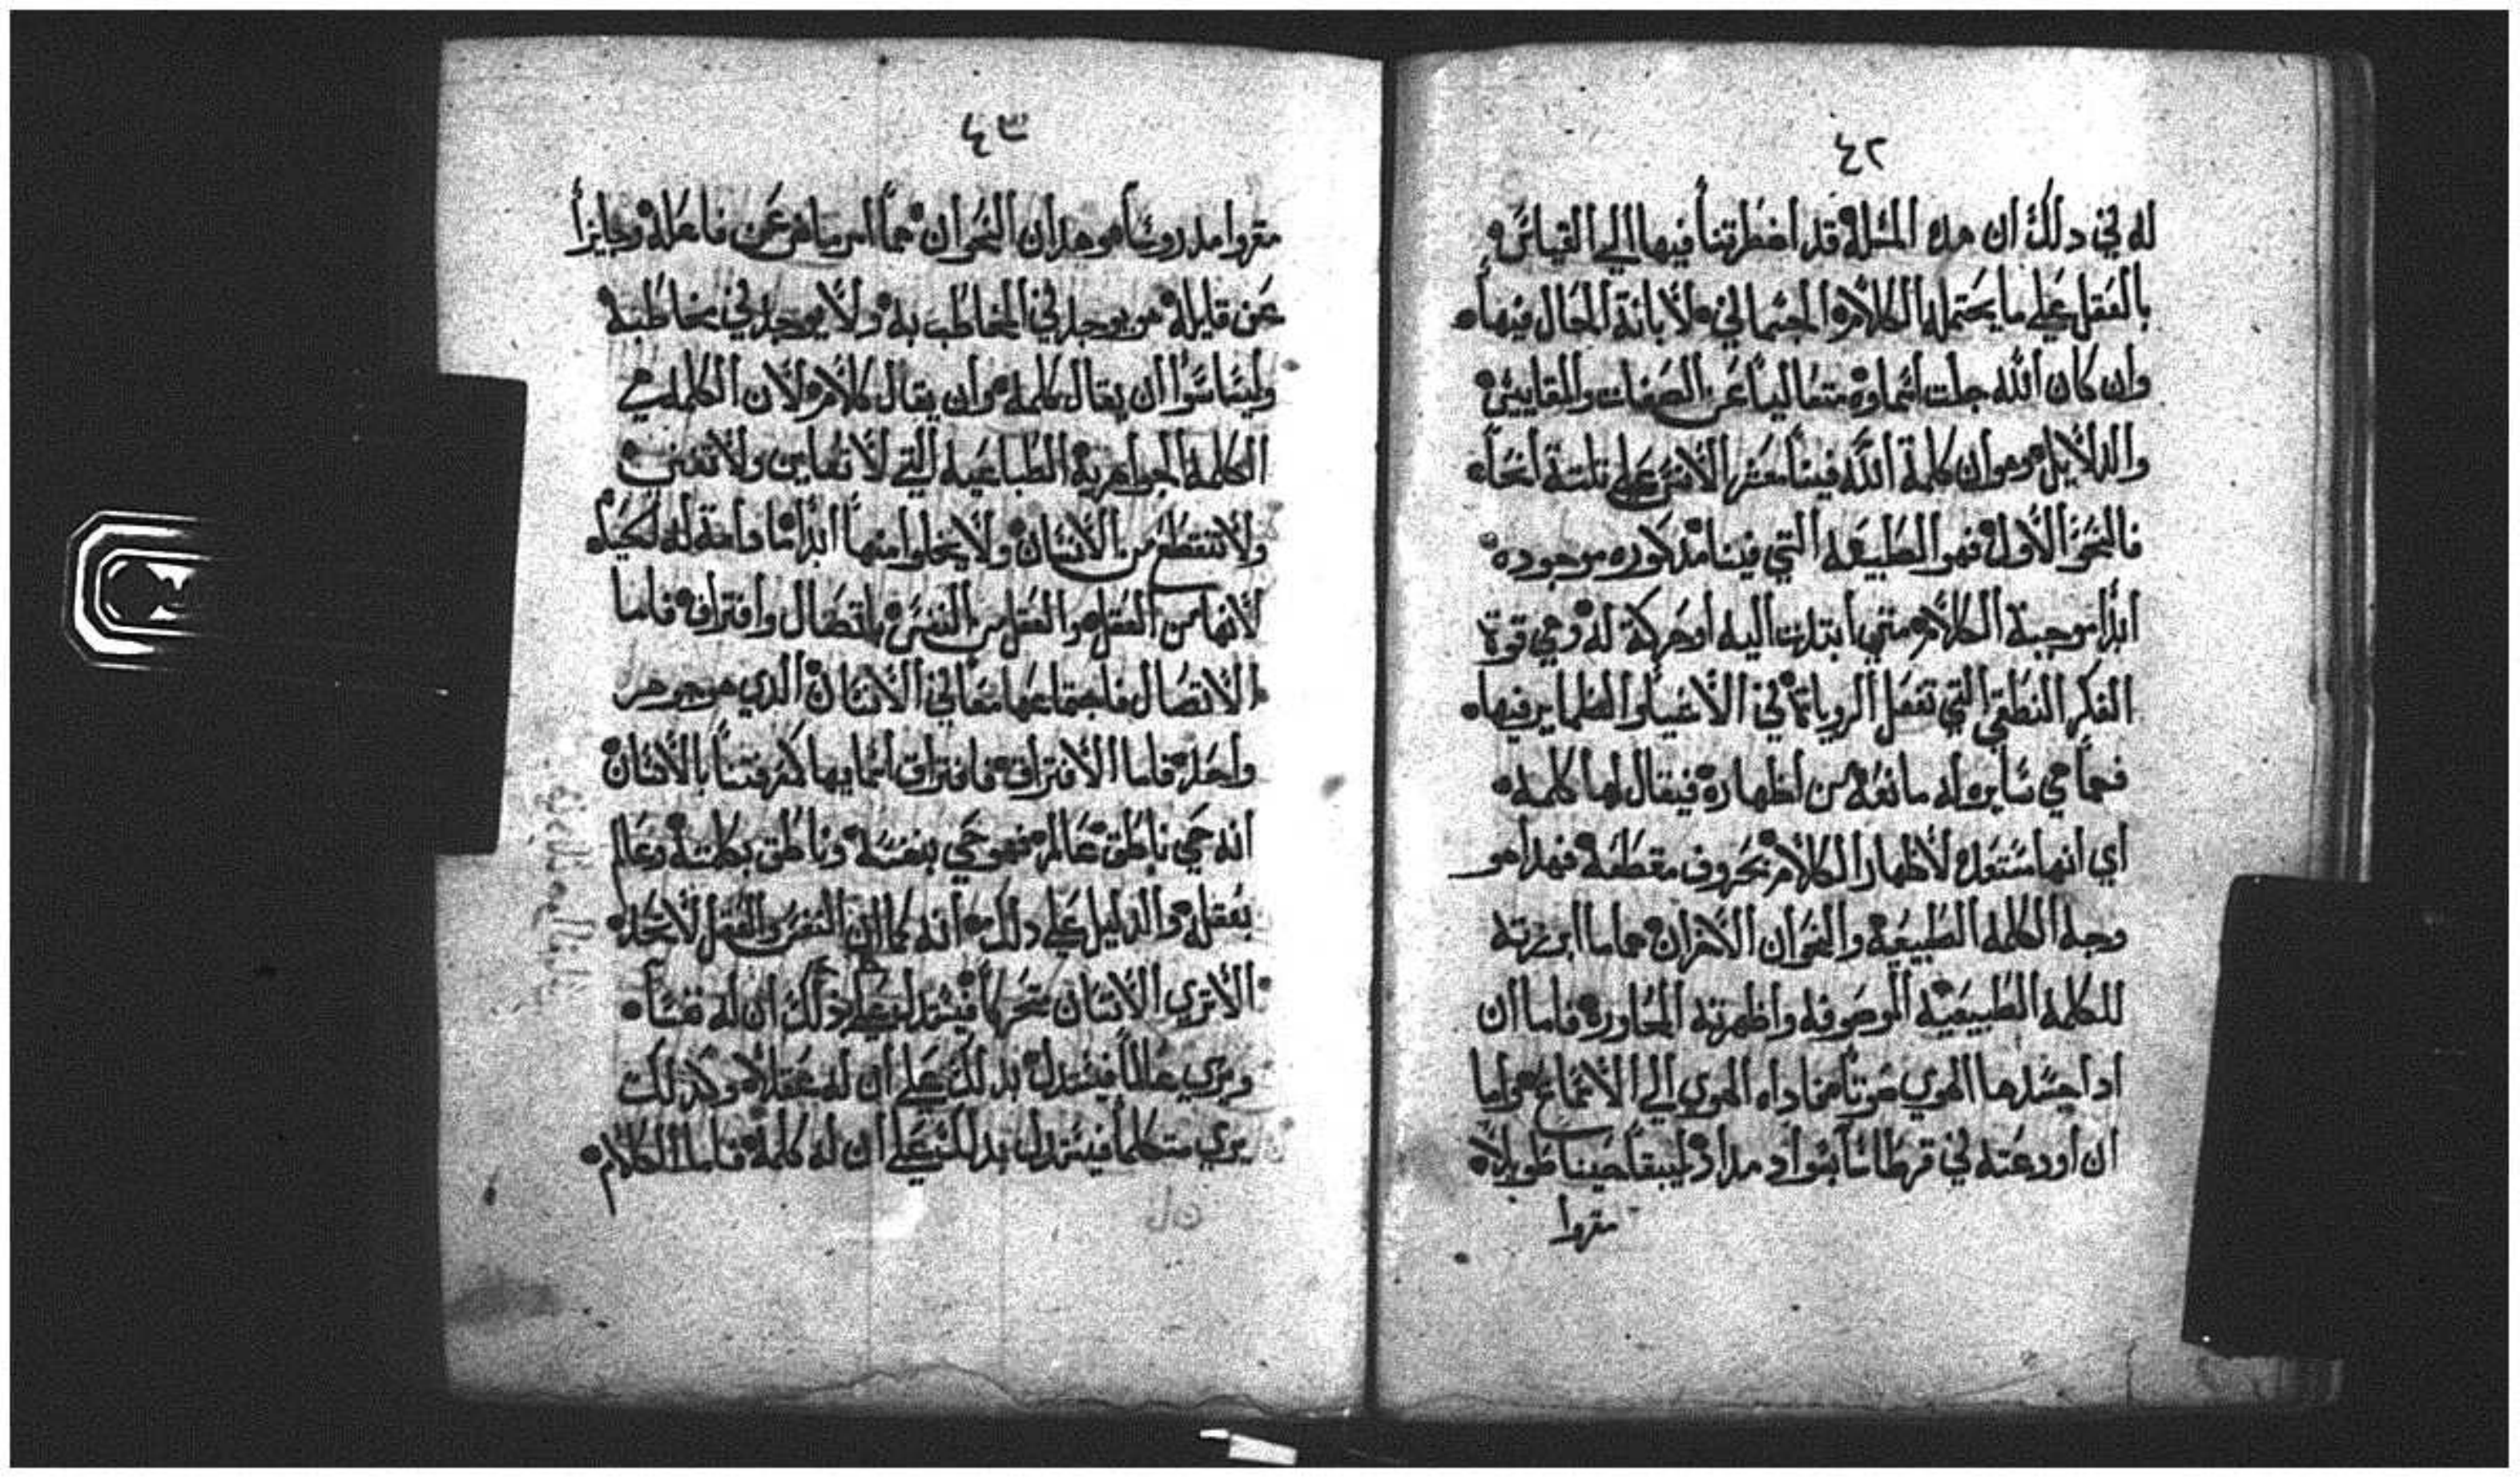 ٤٢
له في دلك ان هده المسله قد اضطرتنا فيها الي القياس
بالعقل علي ما يحتمله الكلام الجسماني لابانة الحال فيها
وان كان الله جلت اسماوه متعالياً عن الصفات والمقاييس
والدلايل وهو ان كلمة الله فينا معشر الانس علي تلتة انحا
فالنحو الاول فهو الطبيعه التي فينا مدكوره موجوده
ابداً موجبة الكلام متي ابتدات اليه اوحركة له وهي قوة
الفكر النطقي التي تفعل الرويات في الاغيا والضماير فيها
فمما هي سايره له مانعه من اظهاره فيقال لها كلمه
اي انها ستتعد لاظهار الكلام بحروف مقطعه فهدا هو
وجه الكلمه الطبيعيه والنحوان الاخران هما ما ابرزته
للكلمه الطبيعيه الموصوفه واظهرته المحاوره فاما ان
ادا جسدها الهوي صوتاً فاداه الهوي الي الاسماع واما
ان اودعته في قرطاساً بسواد مداد ليبقا حيناً طويلاً
مقروا
٤٣
مقروا مدروساً وهدان النحوان هما امر صادر عن فاعله وجايزاً
عن قايله هو يوجد في المخاطب به ولا يوجد في مخاطبه
وليسا سوا ان يقال كلمه وان يقال كلام لان الكلمه هي
الكلمه الجواهرية الطباعيه التي لا تفاين ولا تفني
ولا تنقطع من الانسان ولا يخلوا منها ابداً ما دامة له الحياه
لانها من العقل والعقل من النفس باتصال وافتراق فاما
الاتصال فاجتماعها معاً في الانسان الدي هو جوهر
واحد فاما الافتراق فافتراق اسمايها كمعرفتنا بالانسان
انه حي ناطق عالم فهو حي بنفسه وناطق بكلمته وعالم
بعقله والدليل علي دلك انه كما ان النفس والعقل لا تحد
الا تري الانسان متحركاً فيستدل علي دلك ان له نفساً
ويري عالماً فيستدل بدلك علي ان له عقلاً وكدلك
يري متكلماً فيستدل بدلك علي ان له كلمة فاما الكلام